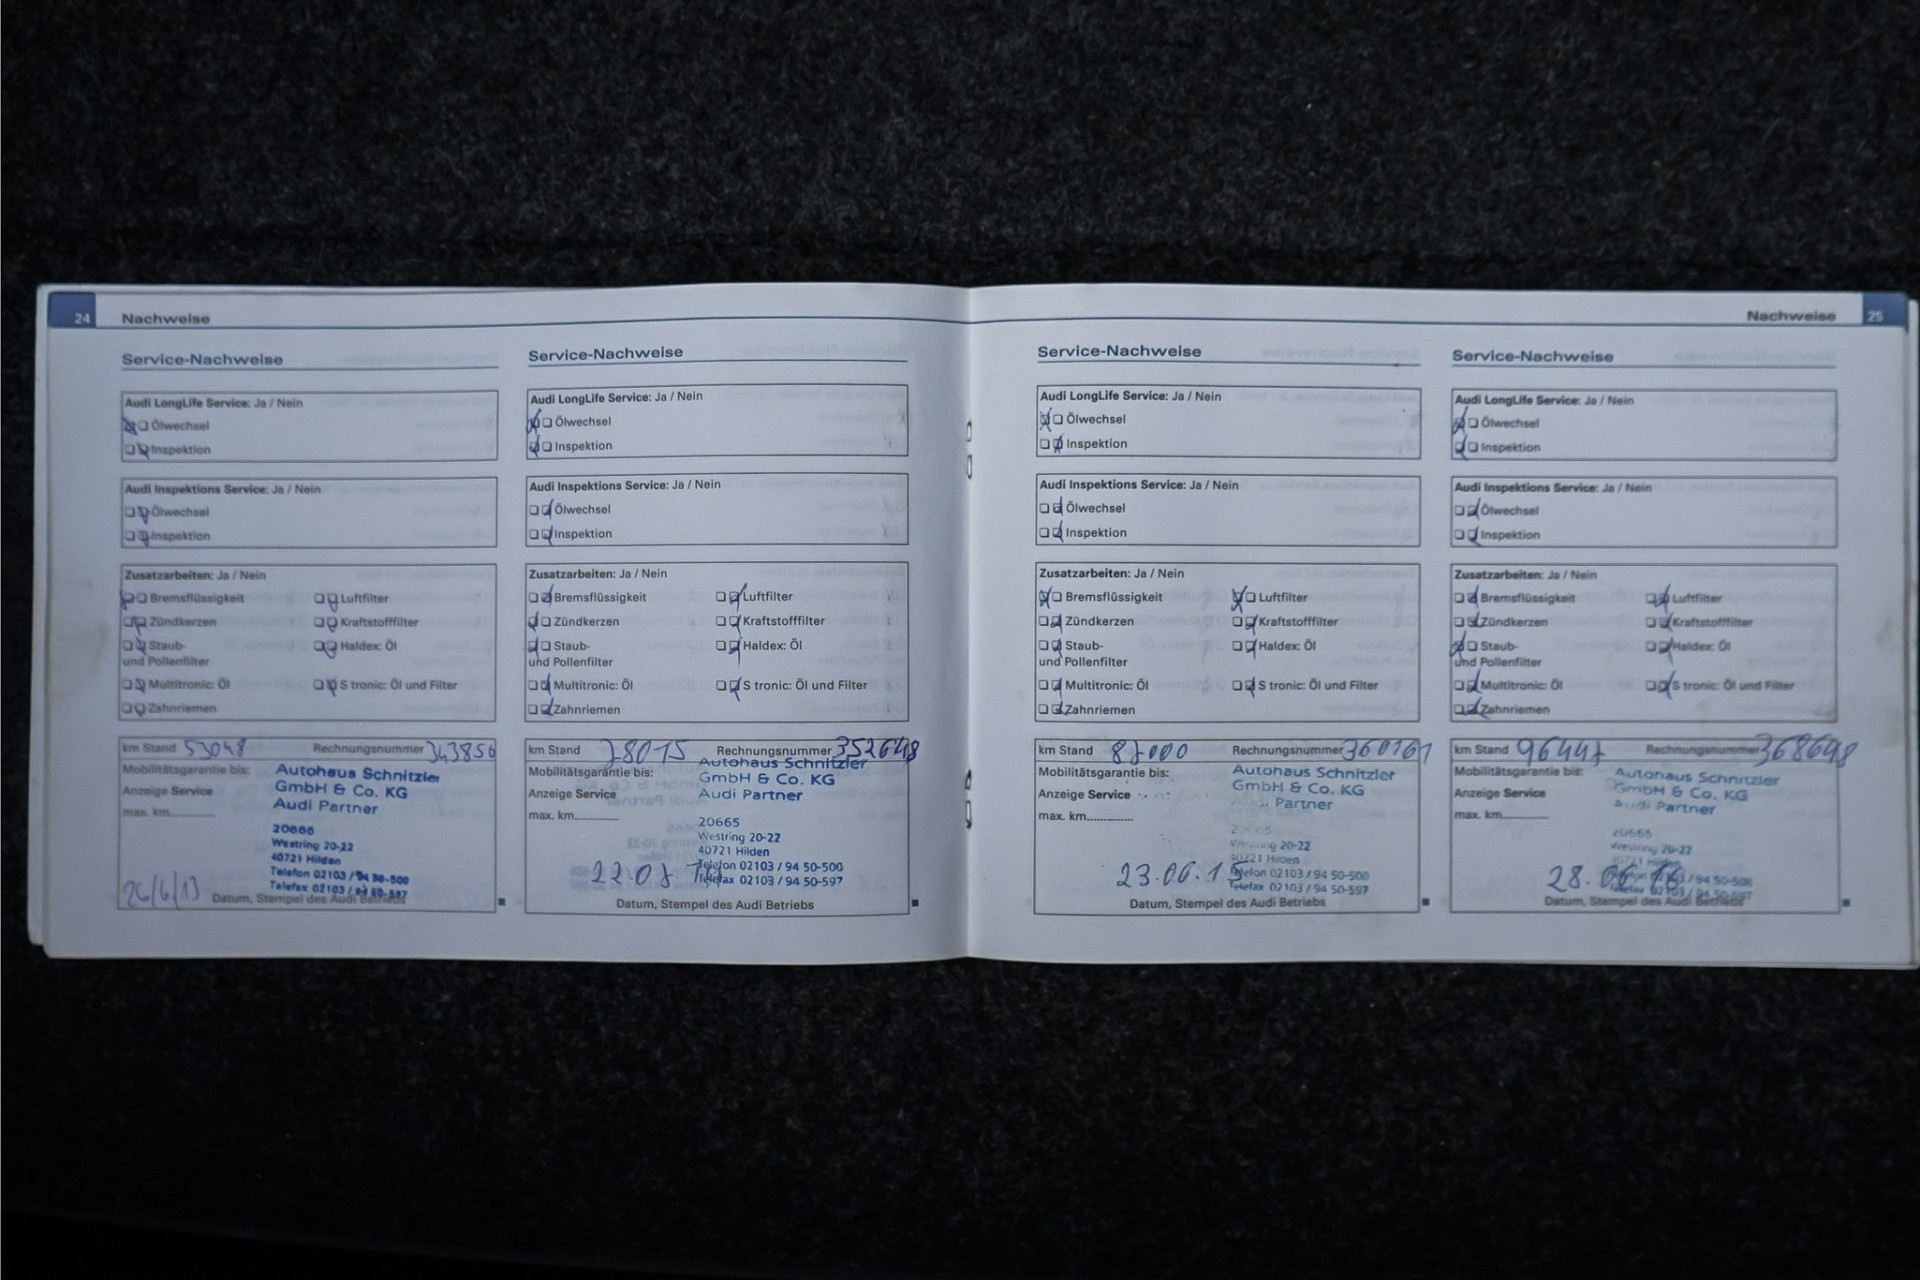 24 Nachweise
Service-Nachweise
Audi LongLife Service: Ja / Nein
Ölwechsel
Inspektion
Audi Inspektions Service: Ja / Nein
Ölwechsel
Inspektion
Zusatzarbeiten: Ja / Nein
Bremsflüssigkeit Luftfilter
Zündkerzen Kraftstofffilter
Staub- Haldex: Öl
und Pollenfilter
Multitronic: Öl S tronic: Öl und Filter
Zahnriemen
km Stand 53048 Rechnungsnummer 343856
Mobilitätsgarantie bis:
Anzeige Service
max. km
Autohaus Schnitzler
GmbH & Co. KG
Audi Partner
20665
Westring 20-22
40721 Hilden
Telefon 02103 / 94 50-500
Telefax 02103 / 94 50-597
26/6/13
Datum, Stempel des Audi Betriebs
Service-Nachweise
Audi LongLife Service: Ja / Nein
Ölwechsel
Inspektion
Audi Inspektions Service: Ja / Nein
Ölwechsel
Inspektion
Zusatzarbeiten: Ja / Nein
Bremsflüssigkeit Luftfilter
Zündkerzen Kraftstofffilter
Staub- Haldex: Öl
und Pollenfilter
Multitronic: Öl S tronic: Öl und Filter
Zahnriemen
km Stand 78015 Rechnungsnummer 352648
Mobilitätsgarantie bis:
Anzeige Service
max. km
Autohaus Schnitzler
GmbH & Co. KG
Audi Partner
20665
Westring 20-22
40721 Hilden
Telefon 02103 / 94 50-500
Telefax 02103 / 94 50-597
22.07.14
Datum, Stempel des Audi Betriebs
Nachweise 25
Service-Nachweise
Audi LongLife Service: Ja / Nein
Ölwechsel
Inspektion
Audi Inspektions Service: Ja / Nein
Ölwechsel
Inspektion
Zusatzarbeiten: Ja / Nein
Bremsflüssigkeit Luftfilter
Zündkerzen Kraftstofffilter
Staub- Haldex: Öl
und Pollenfilter
Multitronic: Öl S tronic: Öl und Filter
Zahnriemen
km Stand 87000 Rechnungsnummer 360161
Mobilitätsgarantie bis:
Anzeige Service
max. km
Autohaus Schnitzler
GmbH & Co. KG
Audi Partner
20665
Westring 20-22
40721 Hilden
Telefon 02103 / 94 50-500
Telefax 02103 / 94 50-597
23.06.15
Datum, Stempel des Audi Betriebs
Service-Nachweise
Audi LongLife Service: Ja / Nein
Ölwechsel
Inspektion
Audi Inspektions Service: Ja / Nein
Ölwechsel
Inspektion
Zusatzarbeiten: Ja / Nein
Bremsflüssigkeit Luftfilter
Zündkerzen Kraftstofffilter
Staub- Haldex: Öl
und Pollenfilter
Multitronic: Öl S tronic: Öl und Filter
Zahnriemen
km Stand 96447 Rechnungsnummer 368648
Mobilitätsgarantie bis:
Anzeige Service
max. km
Autohaus Schnitzler
GmbH & Co. KG
Audi Partner
20665
Westring 20-22
40721 Hilden
Telefon 02103 / 94 50-500
Telefax 02103 / 94 50-597
Datum, Stempel des Audi Betriebs